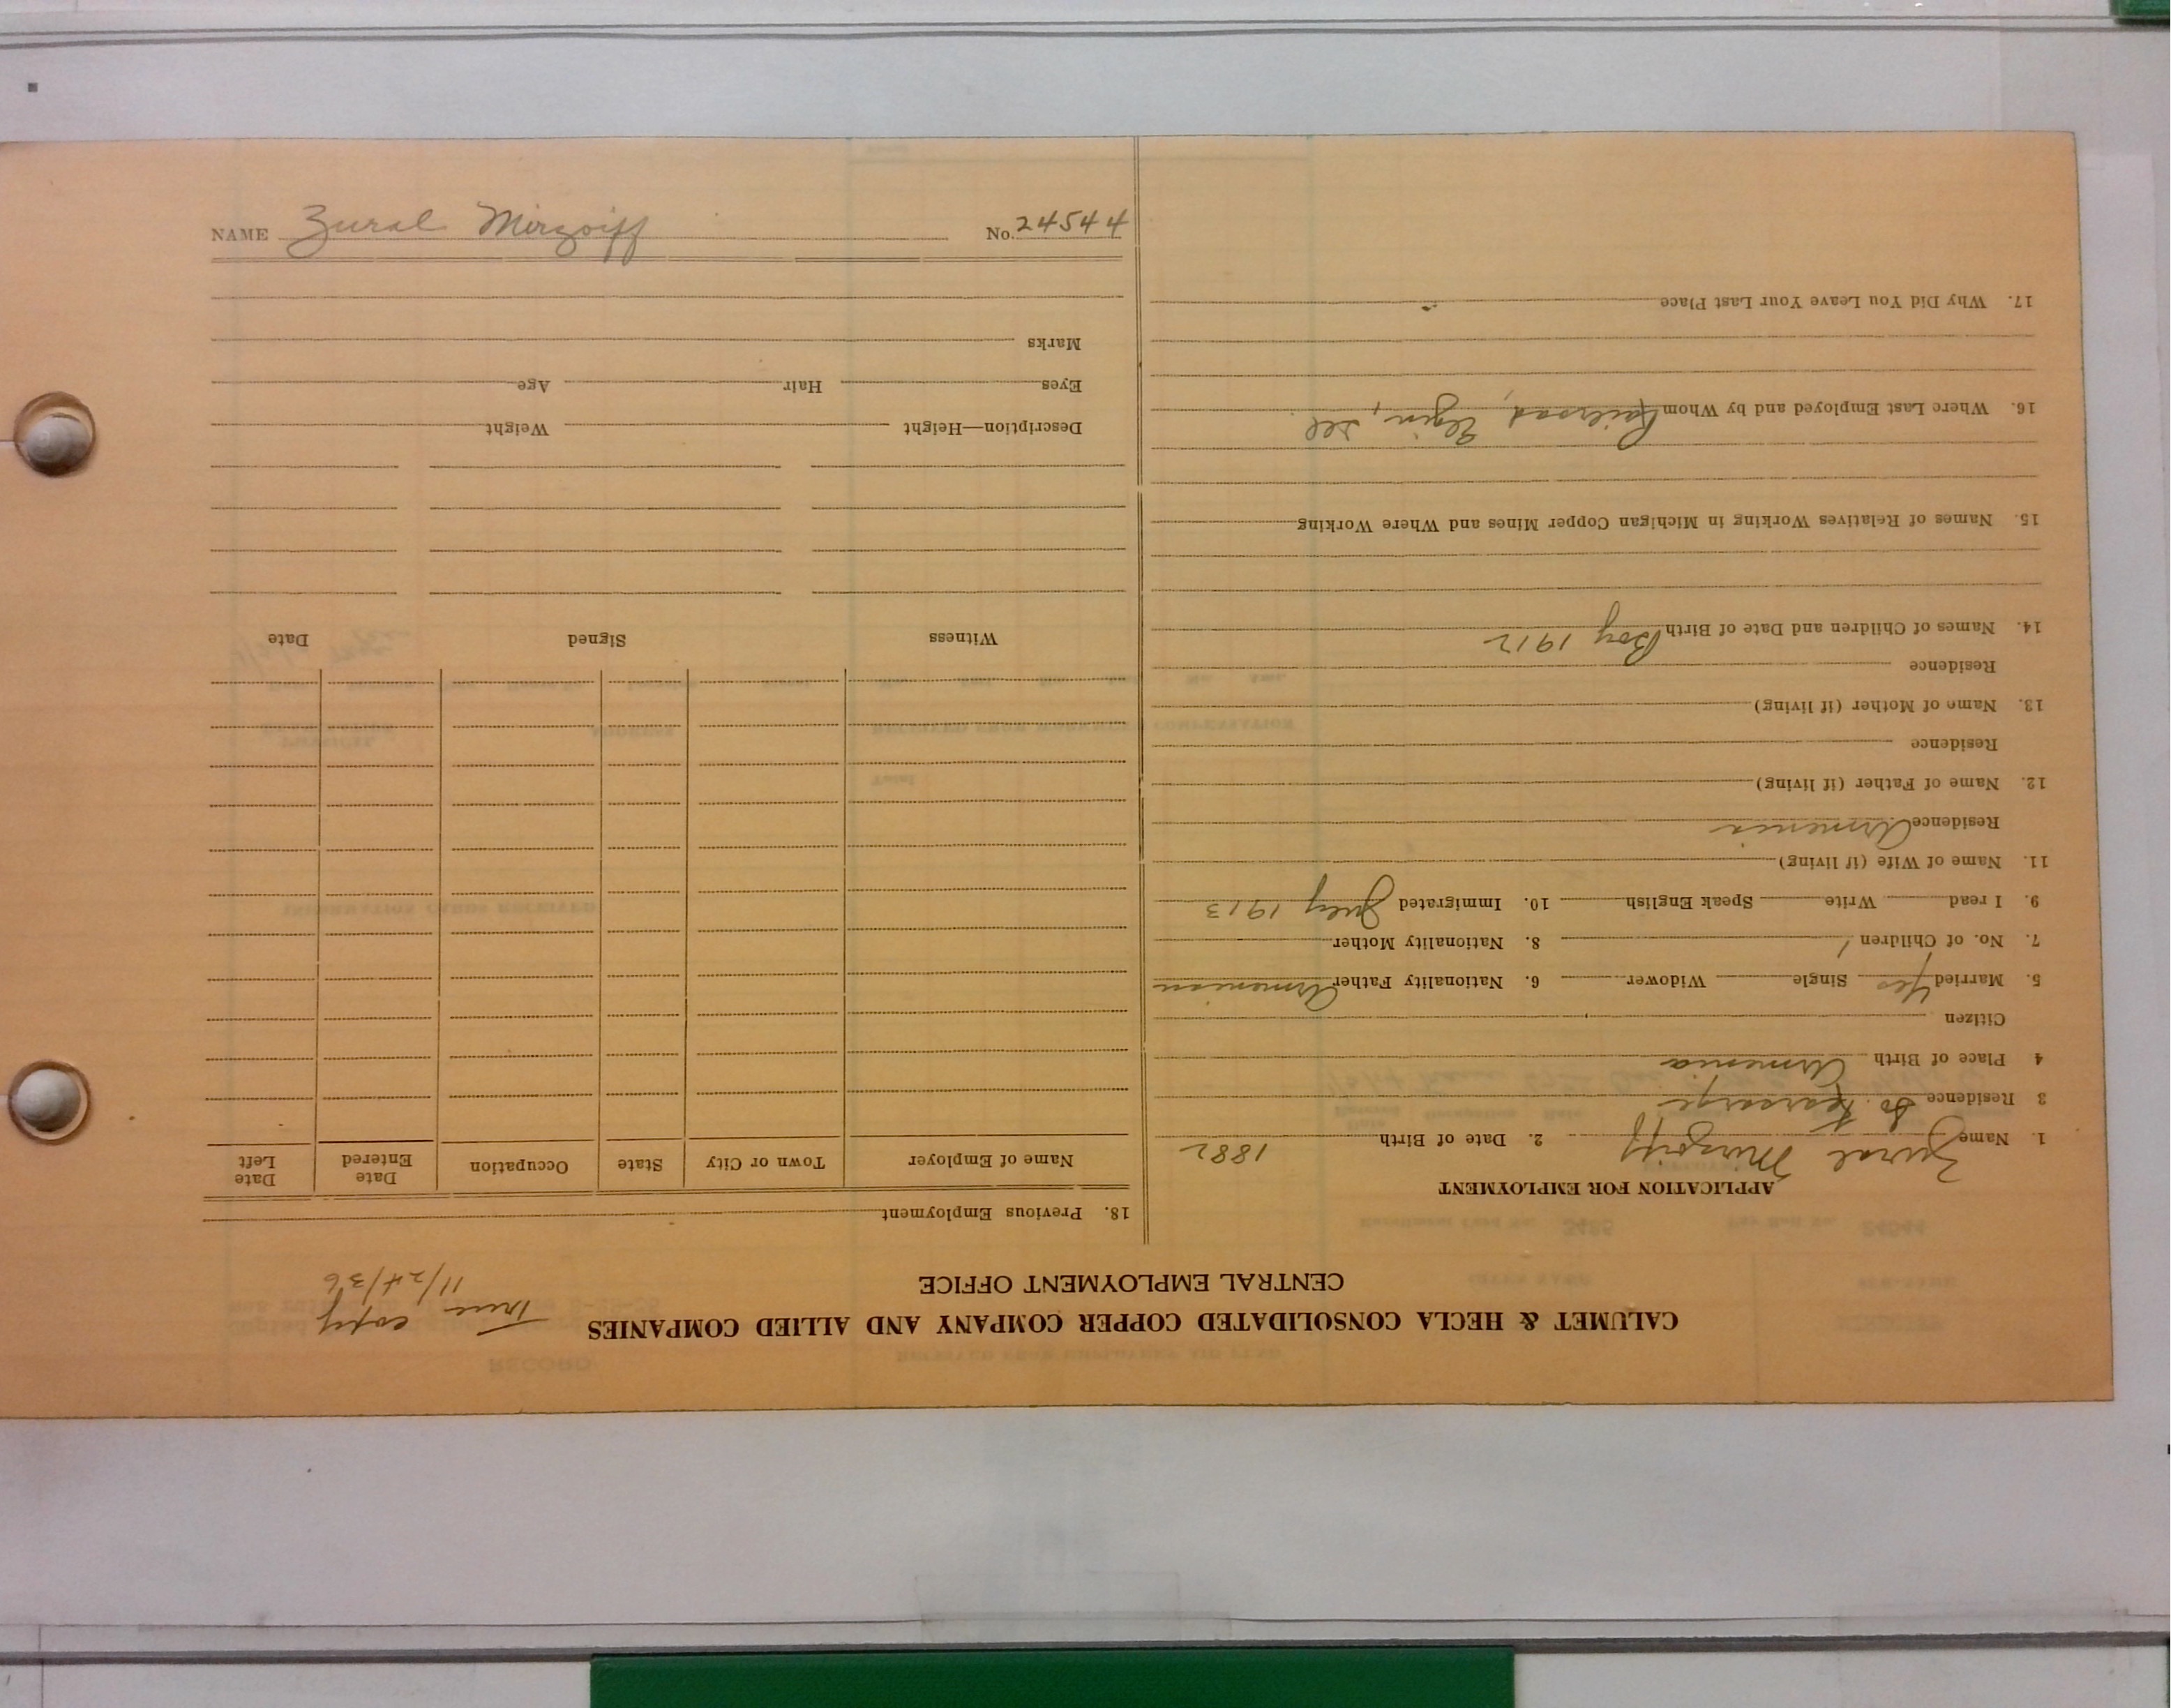 CALUMET & HECLA CONSOLIDATED COPPER COMPANY AND ALLIED COMPANIES
CENTRAL EMPLOYMENT OFFICE
True copy
11/24/36
APPLICATION FOR EMPLOYMENT
1. Name Zural Mirzoiff 2. Date of Birth 1882
3 Residence So. Kearsarge
4 Place of Birth Armenia
Citizen
5. Married Yes Single Widower 6. Nationality Father Armenian
7. No. of Children 1 8. Nationality Mother
9. I read Write Speak English 10. Immigrated July 1913
11. Name of Wife (if living)
Residence Armenia
12. Name of Father (if living)
Residence
13. Name of Mother (if living)
Residence
14. Names of Children and Date of Birth Boy 1912
15. Names of Relatives Working in Michigan Copper Mines and Where Working
16. Where Last Employed and by Whom Railroad, Elgin, Ill
17. Why Did You Leave Your Last Place
18. Previous Employment
Name of Employer Town or City State Occupation Date Entered Date Left
Witness Signed Date
Description—Height Weight
Eyes Hair Age
Marks
NAME Zural Mirzoiff No. 24544